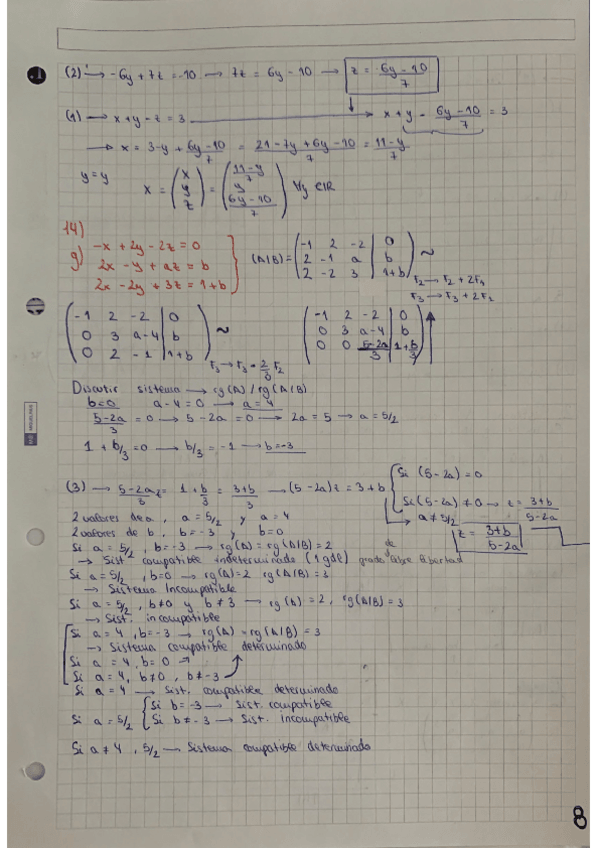 (2) → -6y + 7z = -10 → 7z = 6y - 10 → z = (6y - 10)/7
(1) → x + y - z = 3 → x + y - (6y - 10)/7 = 3
→ x = 3 - y + (6y - 10)/7 = (21 - 7y + 6y - 10)/7 = (11 - y)/7
y = y   x = (x y z) = ((11 - y)/7 y (6y - 10)/7) ∀y ∈ IR
14)
g) -x + 2y - 2z = 0
2x - y + az = b
2x - 2y + 3z = 1 + b
(A|B) = (-1 2 -2 | 0
2 -1 a | b
2 -2 3 | 1+b) ~
F2 → F2 + 2F1
F3 → F3 + 2F1
(-1 2 -2 | 0   (-1 2 -2 | 0
0 3 a-4 | b   ~   0 3 a-4 | b
0 2 -1 | 1+b)   0 0 (5-2a)/3 | 1+b/3)
F3 → F3 - 2/3 F2
Discutir sistema → rg(A) / rg(A|B)
b=0   a - 4 = 0 → a = 4
(5-2a)/3 = 0 → 5 - 2a = 0 → 2a = 5 → a = 5/2
1 + b/3 = 0 → b/3 = -1 → b = -3
(3) → (5-2a)/3 z = 1 + b/3 = (3+b)/3 → (5 - 2a) z = 3 + b
Si (5 - 2a) = 0
Si (5 - 2a) ≠ 0 → z = (3+b)/(5-2a)
→ a ≠ 5/2   z = (3+b)/(5-2a)
2 valores de a, a = 5/2 y a = 4
2 valores de b, b = -3 y b = 0
Si a = 5/2, b = -3 → rg(A) = rg(A|B) = 2
→ Sist. compatible indeterminado (1 gdl) grado de libre libertad
Si a = 5/2, b=0 → rg(A)=2 rg(A|B) = 3
→ Sistema Incompatible
Si a = 5/2, b≠0 y b ≠ 3 → rg(A) = 2, rg(A|B) = 3
→ Sist. incompatible
Si a = 4, b = -3 → rg(A) = rg(A|B) = 3
→ Sistema compatible determinado
Si a = 4, b = 0
Si a = 4, b ≠ 0, b ≠ -3
Si a = 4 → Sist. compatible determinado
Si a = 5/2 { Si b = -3 → Sist. compatible
Si b ≠ -3 → Sist. incompatible
Si a ≠ 4, 5/2 → Sistema compatible determinado
8